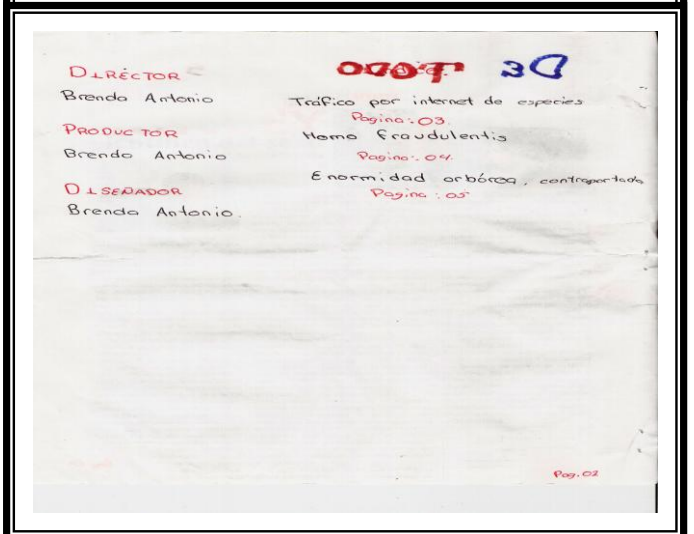 DIRÉCTOR
Brenda Antonio
PRODUCTOR
Brenda Antonio
DISEÑADOR
Brenda Antonio.
Tráfico por internet de especies
Pagina: 03.
Homo fraudulentis
Pagina: 04.
Enormidad arbórea, contraportada
Pagina: 05
Pag. 02